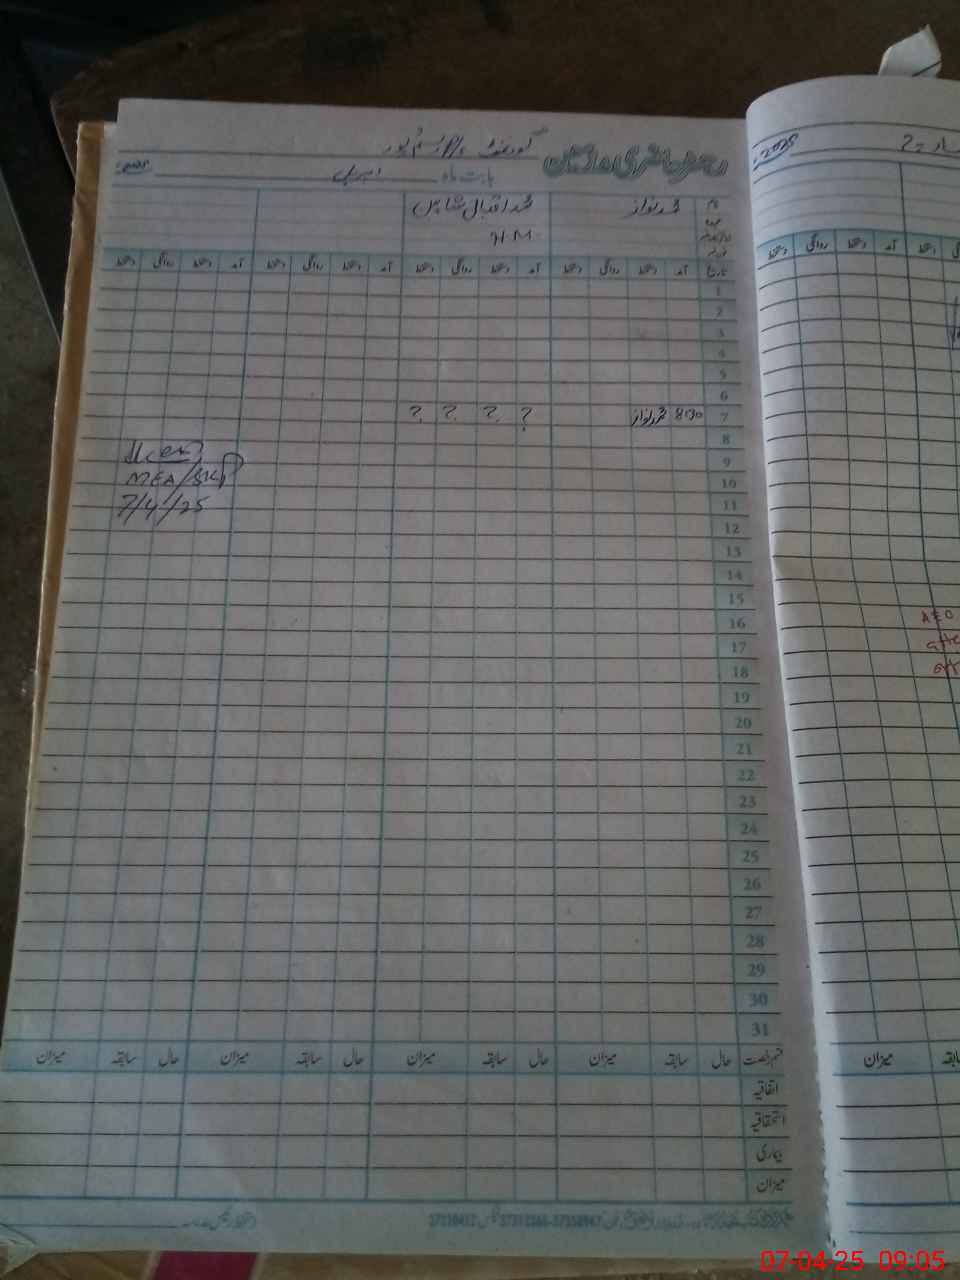 رجسٹر حاضری ملازمین گورنمنٹ
بابت ماہ اپریل 2025ء
نام محمد نواز محمد اقبال
عہدہ H.M.
تاریخ آمد دستخط روانگی دستخط آمد دستخط روانگی دستخط آمد دستخط روانگی دستخط آمد دستخط روانگی دستخط
1
2
3
4
5
6
7 8:30 محمد نواز ? ? ? ?
8
9
10
11
12
13
14
15
16
17
18
19
20
21
22
23
24
25
26
27
28
29
30
31
MEA/SKP
7/4/25
قسم رخصت حال سابقہ میزان حال سابقہ میزان حال سابقہ میزان حال سابقہ میزان
اتفاقیہ
استحقاقیہ
بیماری
میزان
2025ء
دستخط روانگی دستخط آمد دستخط
AEO
میزان سابقہ
07-04-25 09:05